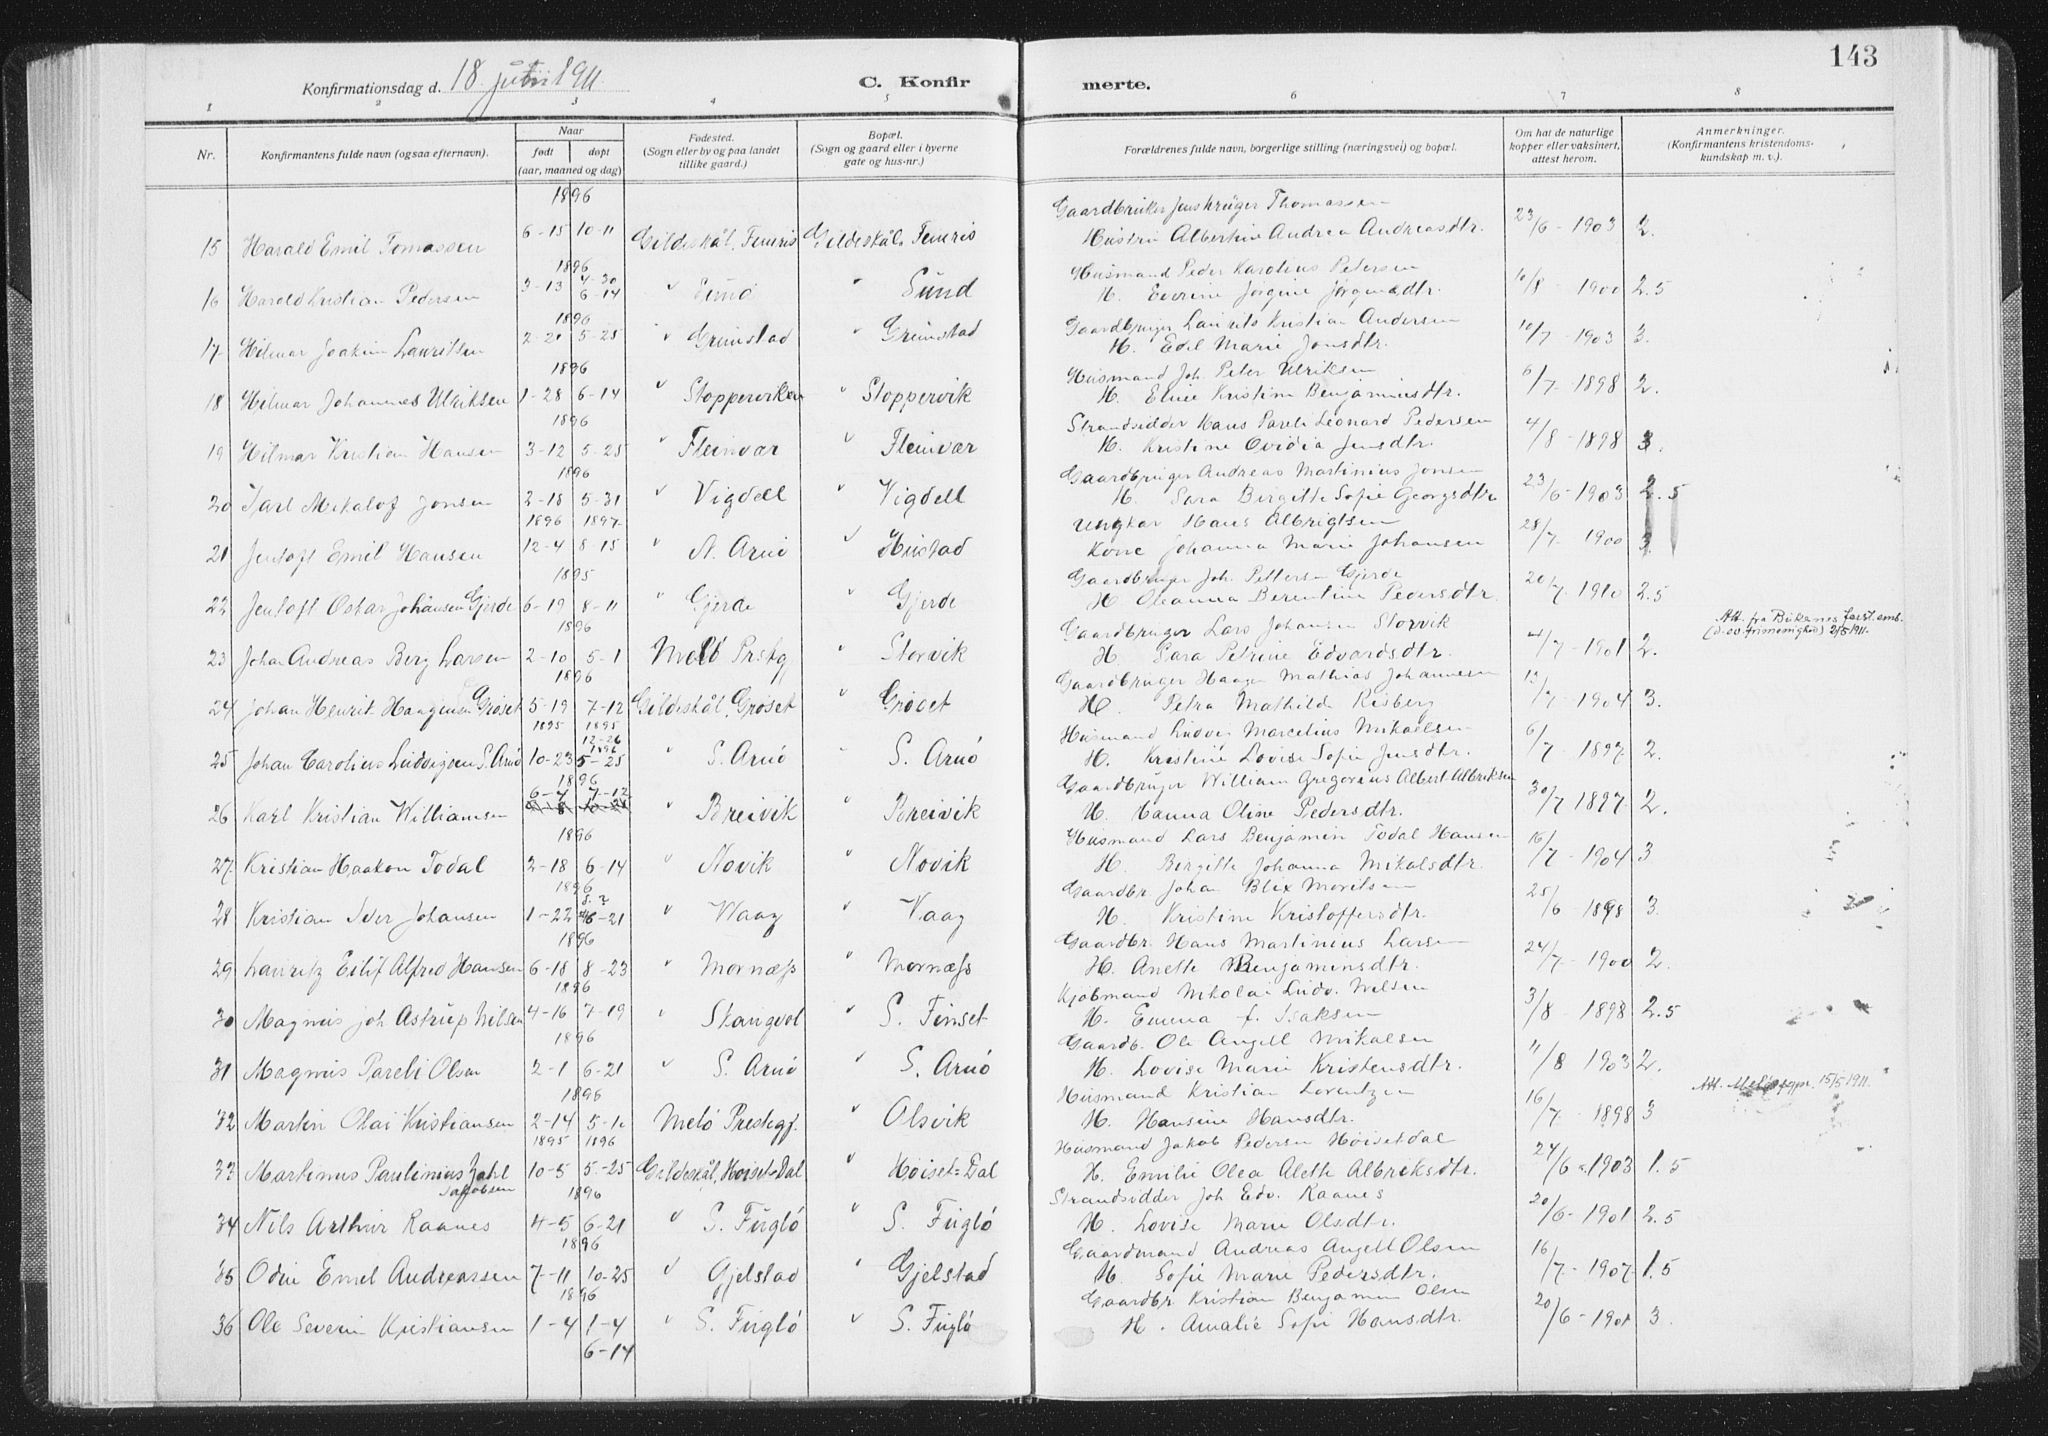 143
Konfirmationsdag d. 18 juni 1911.
C. Konfirmerte.
1 2 3 4 5 6 7 8
Nr.
Konfirmantens fulde navn (ogsaa efternavn).
Naar
født døpt
(aar, maaned og dag)
Fødested.
(Sogn eller by og paa landet
tillike gaard.)
Bopæl.
(Sogn og gaard eller i byerne
gate og hus-nr.)
Forældrenes fulde navn, borgerlige stilling (næringsvei) og bopæl.
Om hat de naturlige
kopper eller vaksinert,
attest herom.
Anmerkninger.
(Konfirmantens kristendoms-
kundskap m. v.).
1896 Gaardbruker Jens Krüger Thomassen
15 Harald Emil Tomassen 6-15 10-11 Gildeskål, Femris Gildeskål, Femris Hustru Albertine Andrea Andreasdtr. 23/6-1903 2.
1896 Husmand Peder Karolius Petersen
16 Harold Kristian Pedersen 3-13 4-30 6-14 " Sund " Sund H. Jørgine Jørgensdtr. 10/8 1900 2.5
1896 Gaardbruger Laurits Kristian Andersen
17 Hilmar Joakim Lauritsen 2-21 5-25 " Grimstad " Grimstad H. Edel Marie Jonsdtr. 10/7 1903 3.
1896 Husmand Joh. Peter Ulriksen
18 Hilmar Johannes Ulriksen 1-28 6-14 " Stoppervika " Stoppervik H. Kristine Benjaminsdtr. 6/7-1898 2.
1896 Strandsidder Hans Pareli Leonard Pedersen
19 Hilmar Kristian Hansen 3-12 5-25 " Fleinvær " Fleinvær H. Kristine Ovidia Jensdtr. 4/8-1898 3.
1896 Gaardbruger Andreas Martinius Jonsen
20 Karl Mikalof Jonsen 2-18 5-31 " Vigdell " Vigdell H. Sara Birgitte Sofie Georgsdtr 23/6-1903 2.5
1896 1897 Ungkar Hans Albrigtsen
21 Jentoft Emil Hansen 12-4 8-15 " N. Arnø " Hustad Kone Johanna Marie Johansen 28/7 1900 3.
1895 Gaardbruger Joh. Pettersen Gjerde
22 Jentoft Oskar Johansen Gjerde 6-19 8-11 " Gjerde " Gjerde H. Oleanna Berentine Pedersdtr. 20/7-1910 2.5
1896 Gaardbruger Lars Johansen Storvik Att. fra
23 Johan Andreas Berg Larsen 2-10 5-1 Melö Prstg " Storvik H. Sara Petrine Edvardsdtr. 4/7-1901 2.
1896 Gaardbruger Haagen Mathias Johannesen
24 Johan Henrik Haagensen Grøset 5-19 7-12 Gildeskål, Grøset " Grøset H. Petra Mathilde Risberg 13/7-1904 3.
1895 1895 12-26 1896 Husmand Ludvig Marcelius Mikaelsen
25 Johan Carolius Ludvigsen S. Arnö 10-23 5-25 " S. Arnö " S. Arnö H. Kristine Lovise Sofie Jensdtr. 6/7-1897 2.
1896 Gaardbruger William Gregorius Albert Albriksen
26 Karl Kristian Williamsen 6-4 7-12 " Breivik " Breivik H. Hanna Oline Pedersdtr. 30/7 1897 2.
1896 Husmand Lars Benjamin Todal Hansen
27 Kristian Haakon Todal 2-18 6-14 " Novik " Novik H. Bergitte Johanna Mikalsdtr. 16/7-1904 3
1896 Gaardbr. Johan Blix Moritsen
28 Kristian Iver Johansen 1-22 6-21 " Waag " Vaag H. Kristine Kristoffersdtr. 25/6-1898 3.
1896 Gaardbr. Hans Martinius Larsen
29 Lauritz Eilif Alfred Hansen 6-18 8-23 " Mornæss " Mornæss H. Anette Benjaminsdtr. 24/7-1900 2.
1896 Kjøbmand Nikolai Ludv. Nilsen
30 Magnus Joh Astrup Nilsen 4-16 7-19 " Stangvol " S. Finset H. Emma f. Isaksen 3/8-1898 2.5
1896 Gaardb. Ole Angell Mikalsen
31 Magnus Pareli Olsen 2-1 6-21 " S. Arnö " S. Arnö H. Lovise Marie Kristensdtr. 11/8 1903 2.
1896 Husmand Kristian Lorentzen Att. 15/5 1911.
32 Martin Olai Kristiansen 2-14 5-10 Melö Prestegj. " Olsvik H. Hansine Hansdtr. 16/7-1898 3
1895 1896 Husmand Jakob Pedersen Høisetdal
33 Martinus Paulinius Zahl Jakobsen 10-5 5-25 Gildeskål, Høiset=Dal " Høiset=Dal H. Emilie Olea Alette Albriksdtr. 24/6-1903 1.5
1896 Strandsidder Joh. Edv. Raanes
34 Nils Arthur Raanes 4-5 6-21 " S. Fuglö " S. Fuglö H. Lovise Marie Olsdtr. 20/6-1901 2.5
1896 Gaardmand Andreas Angell Olsen
35 Odin Emil Andreassen 7-11 10-25 " Gjelstad " Gjelstad H. Sofie Marie Pedersdtr. 16/7-1907 1.5
1896 Gaardbr Kristian Benjamin Olsen
36 Ole Severin Kristiansen 1-4 1-4 6-14 " S. Fuglö " S. Fuglö H. Amalie Sofie Hansdtr. 20/6-1901 3.